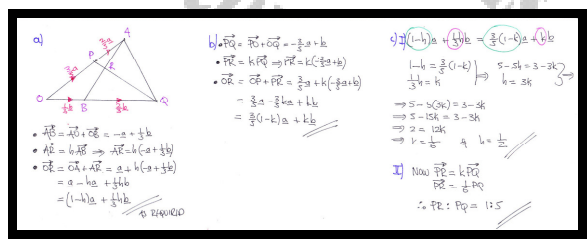 a)
A
P
R
O
B
Q
• AB = AO + OB = -a + 1/3 b
• AR = h AB ⇒ AR = h(-a + 1/3 b)
• OR = OA + AR = a + h(-a + 1/3 b)
= a - ha + 1/3 hb
= (1-h)a + 1/3 hb
AS REQUIRED
b) • PQ = PO + OQ = -3/5 a + b
• PR = k PQ ⇒ PR = k(-3/5 a + b)
• OR = OP + PR = 3/5 a + k(-3/5 a + b)
= 3/5 a - 3/5 ka + kb
= 3/5 (1-k)a + kb
c) I) (1-h)a + 1/3 h b = 3/5 (1-k)a + k b
1-h = 3/5 (1-k)
1/3 h = k
⇒ 5-5h = 3-3k
h = 3k
⇒
⇒ 5-5(3k) = 3-3k
⇒ 5-15k = 3-3k
⇒ 2 = 12k
⇒ k = 1/6 & h = 1/2
II) NOW PR = k PQ
PR = 1/6 PQ
∴ PR : PQ = 1:5